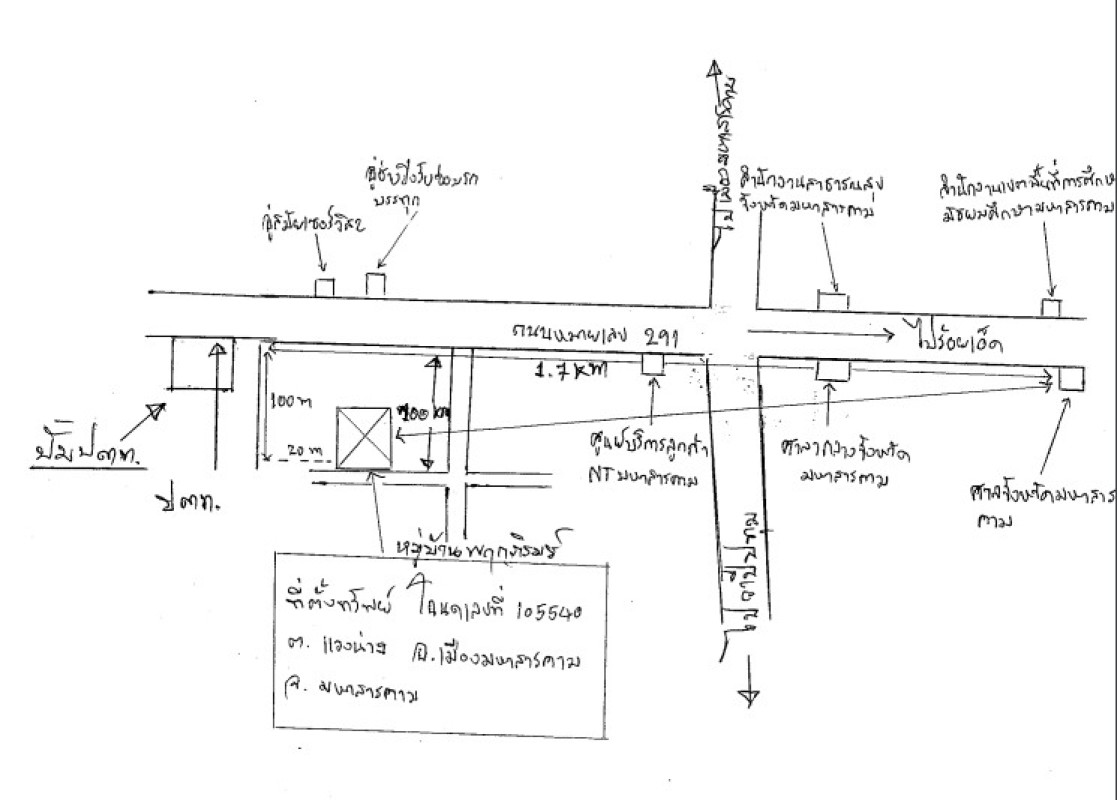 ไปเมืองมหาสารคาม
อู่ช่างอึ่งรับซ่อมรถ
บรรทุก
อู่สมัยเซอร์วิส2
สำนักงานสาธารณสุข
จังหวัดมหาสารคาม
สำนักงานเขตพื้นที่การศึกษา
มัธยมศึกษามหาสารคาม
ถนนหมายเลข 291
ไปร้อยเอ็ด
1.7 km
100 m
20 m
ปั๊มปตท.
ปตท.
ศูนย์บริการลูกค้า
NT มหาสารคาม
ศาลากลางจังหวัด
มหาสารคาม
ศาลจังหวัดมหาสาร
คาม
หมู่บ้านพฤกภิรมย์
ที่ตั้งทรัพย์ โฉนดเลขที่ 105540
ต. แวงน่าง อ.เมืองมหาสารคาม
จ. มหาสารคาม